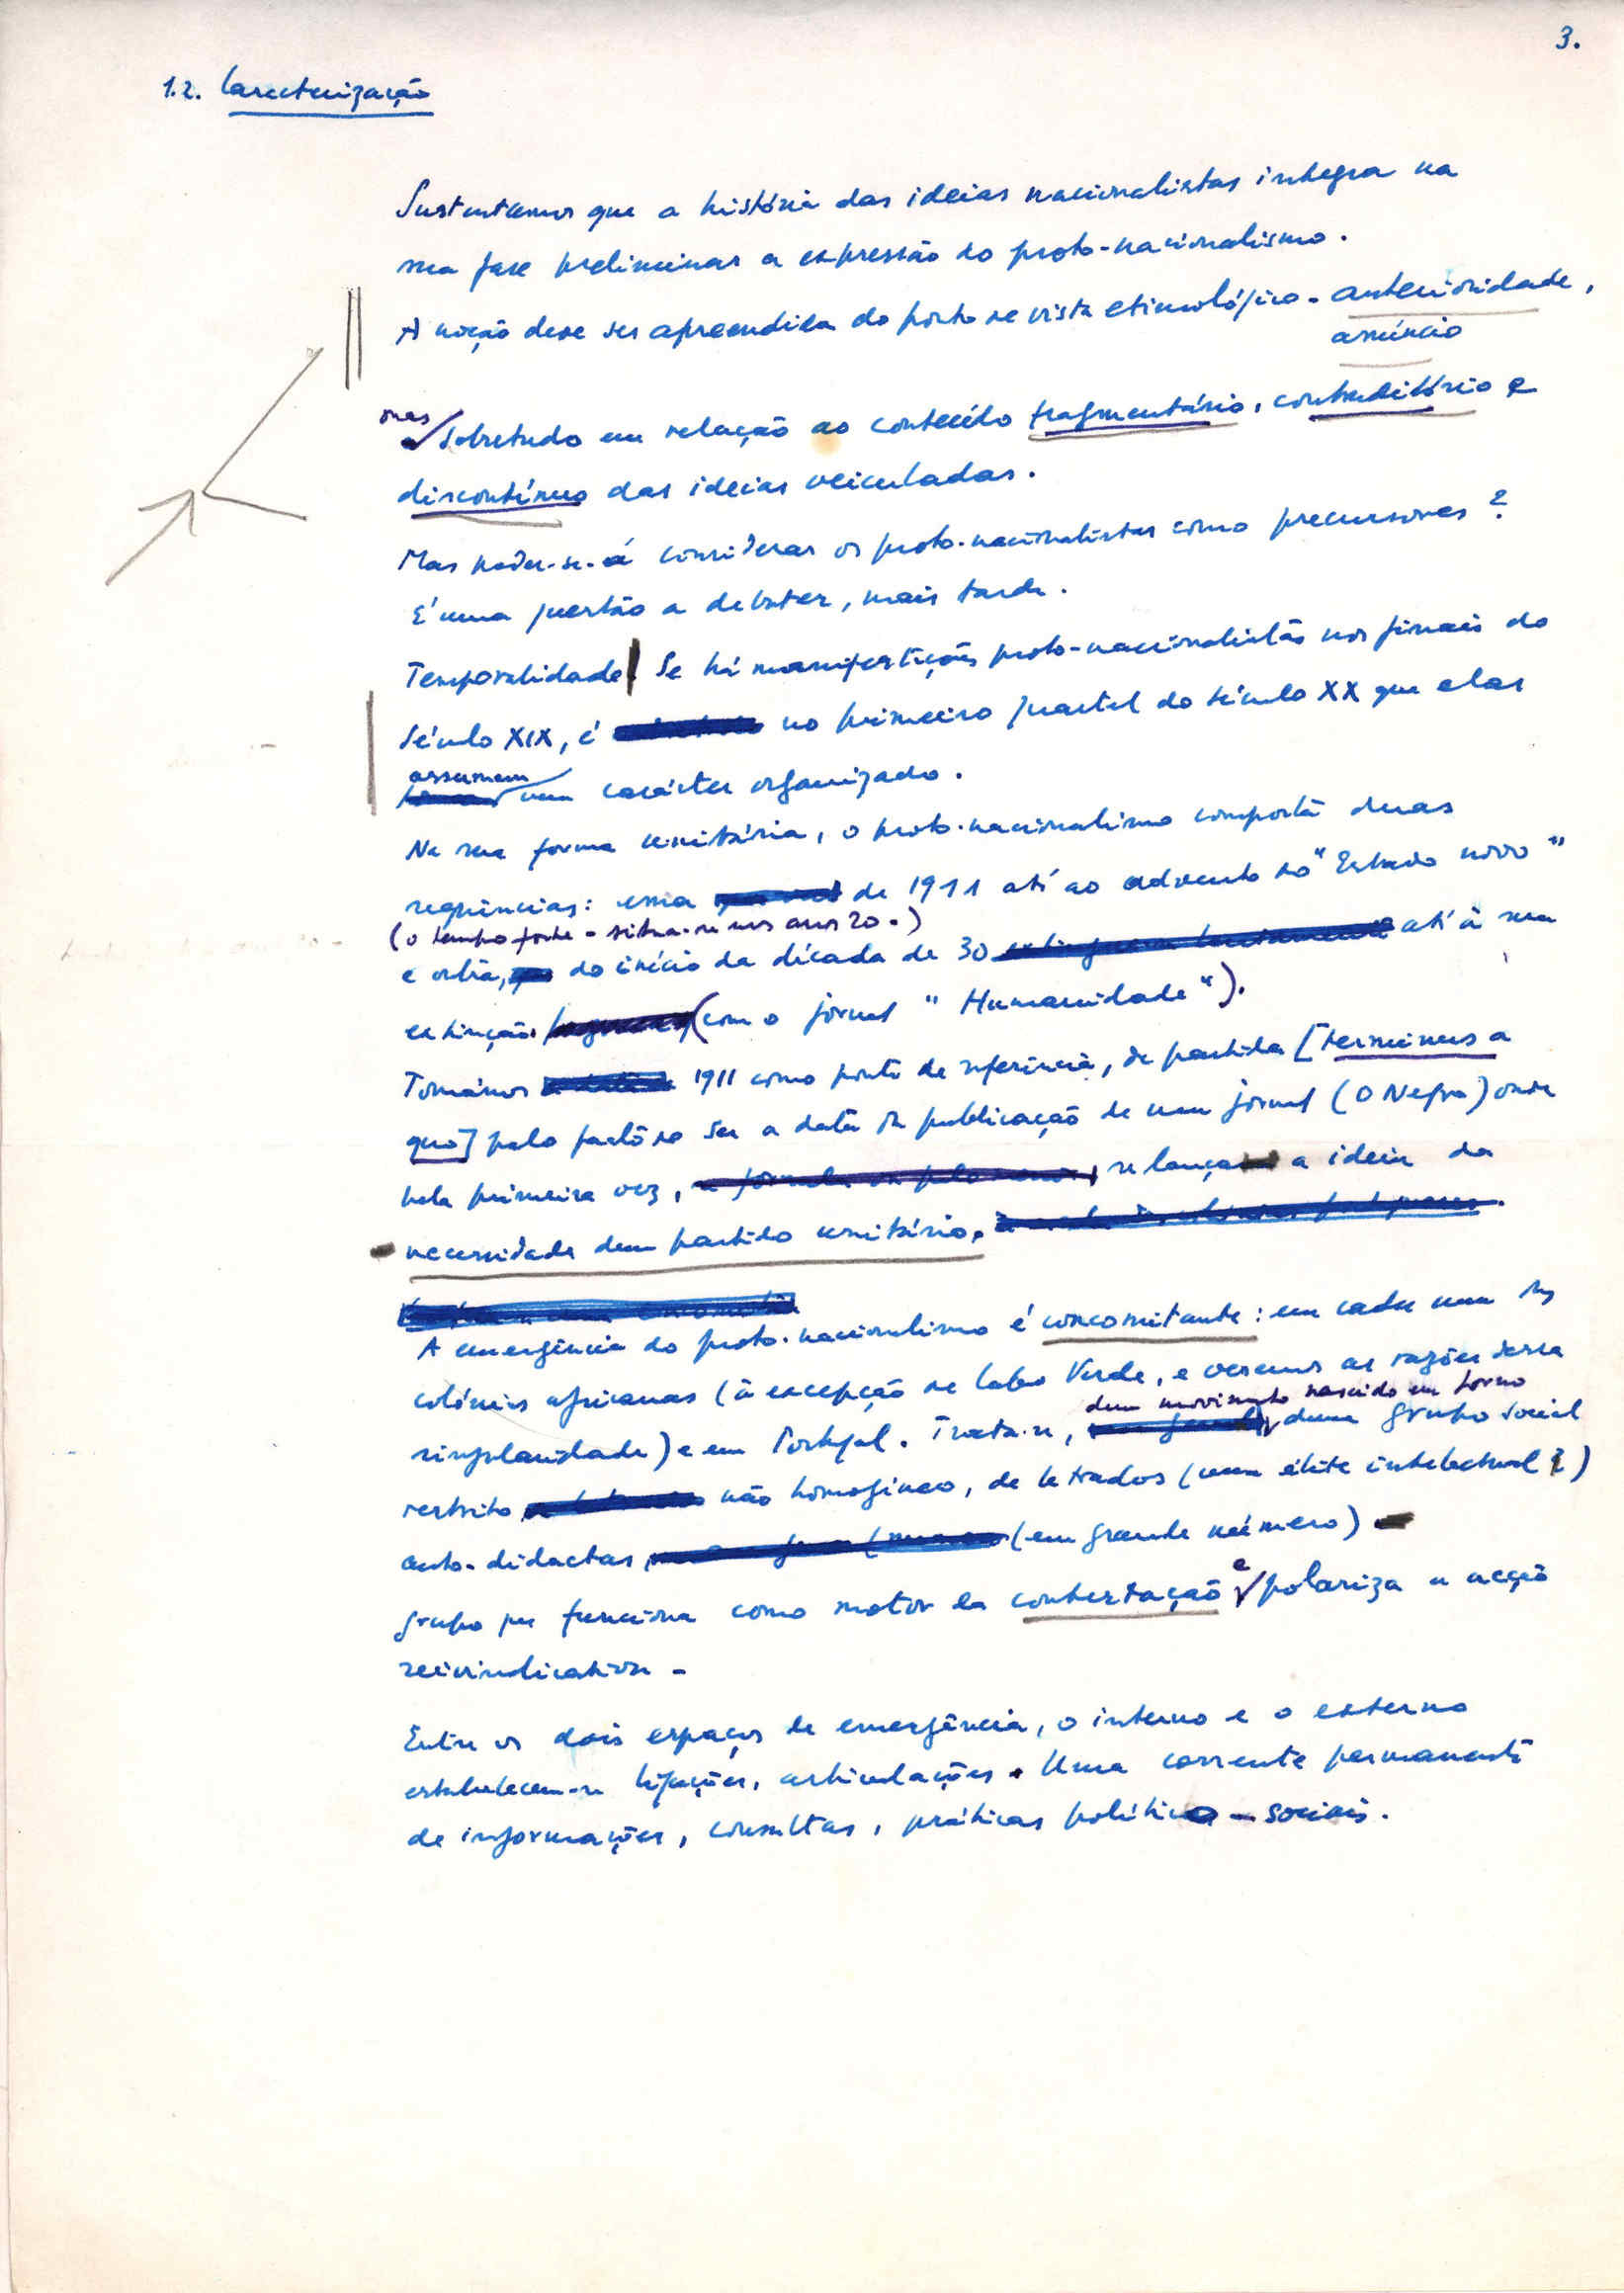 3.
1.2. Caracterização
Sustentamos que a história das ideias nacionalistas integra na
sua fase preliminar a expressão do proto-nacionalismo.
A noção deve ser apreendida do ponto de vista etimológico - anterioridade,
anúncio
mas
sobretudo em relação ao conteúdo fragmentário, contraditório e
discontínuo das ideias veiculadas.
Mas poder-se-á considerar os proto-nacionalistas como precursores?
É uma questão a debater, mais tarde.
Temporalidade Se há manifestações proto-nacionalistas nos finais do
século XIX, é no primeiro quartel do século XX que elas
assumem
um carácter organizado.
Na sua forma unitária, o proto-nacionalismo comporta duas
sequências: uma de 1911 até ao advento do "Estado novo"
(o tempo forte - situa-se nos anos 20 -)
e outra, do início da década de 30 até à sua
extinção (com o jornal "Humanidade").
Tomámos 1911 como ponto de referência, de partida [terminus a
quo] pelo facto de ser a data da publicação de um jornal (O Negro) onde
pela primeira vez, se lança a ideia da
necessidade dum partido unitário.
A emergência do proto-nacionalismo é concomitante: em cada uma das
colónias africanas (à excepção de Cabo Verde, e veremos as razões dessa
singularidade) e em Portugal. Trata-se,
dum movimento nascido em torno
dum grupo social
restrito não homogéneo, de letrados (uma élite intelectual?)
auto-didactas (em grande número)
grupo que funciona como motor da contestação e polariza a acção
reivindicativa -
Entre os dois espaços de emergência, o interno e o externo
estabelecem-se ligações, articulações. Uma corrente permanente
de informações, consultas, práticas político - sociais.